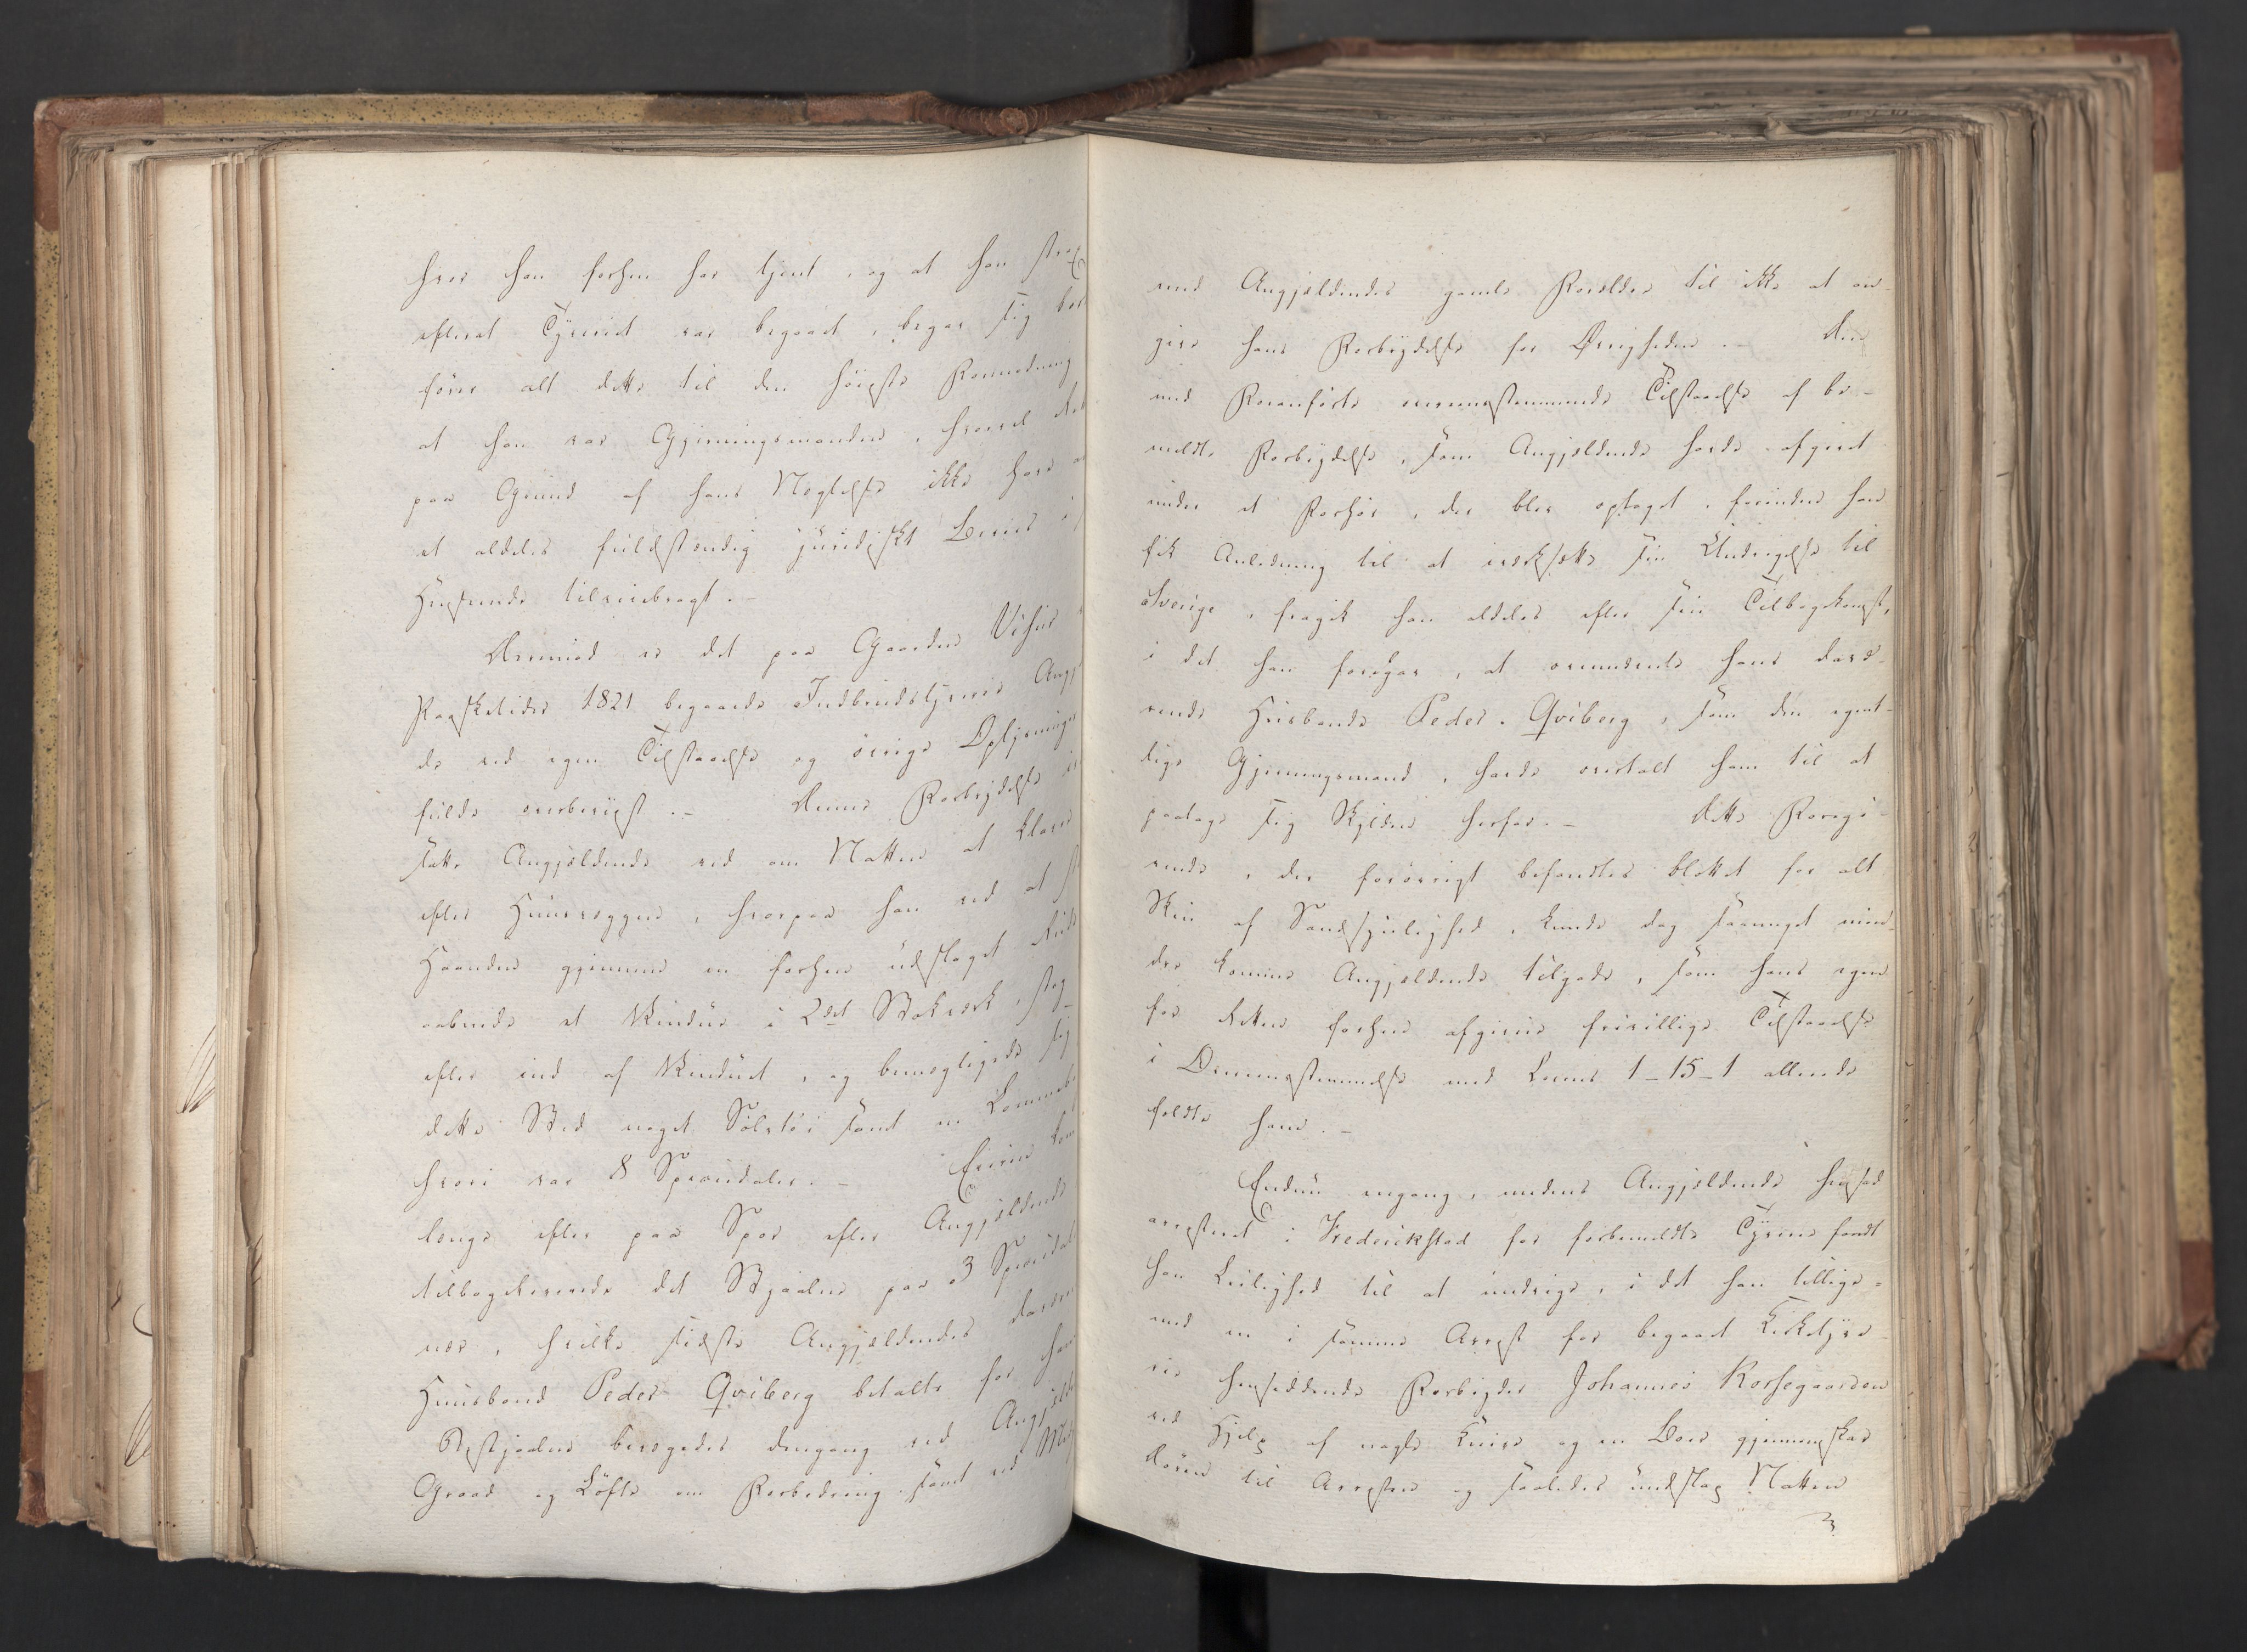 hvor han forhen har tjent, og at han strax
efterat Tyveriet var begaaet, begav sig bort
fører alt dette til den høieste Formodning
at han var Gjerningsmanden, hvorvel det
paa Grund af hans Nægtelse ikke have
et aldeles fuldstændig juridiskt Beviis i
Henseende tilveiebragt.
Derimod er det paa Gaarden
Paasketider 1821 begaaede Indbrudstyverie Angj
de ved egen Tilstaaelse og øvrige Oplysninger
fulde overbeviist. – Denne Forbrydelse
satte Angjeldende ved om Natten at klavre
efter Huusvæggen, hvorpaa han ved at
Haanden gjennem en forhen udslaget Rude
aabnede et Vindue i 2det Stokværk, steg
efter ind af Vinduet, og bemægtigede sig
dette Sted noget Sølvtøi samt en
hvori var 8 Speciedaler. – Eieren kom
længe efter paa Spor efter Angjeldende
tilbageleverede det Stjaalne paa 3 Speciedal
nær, hvilke sidste Angjeldendes daværen
Huusbond Peder Qviberg betalte for ham
Bestjaalne bevægedes dengang ved Angjelde
Graad og Løfte om Forbedring samt ved
med Angjeldendes gamle Forældre til ikke at an-
give hans Forbrydelse for Øvrigheden. – Den
med Foranførte overeensstemmende Tilstaaelse af be-
meldte Forbrydelse, som Angjeldende havde afgivet
under et Forhør, der blev optaget, forinden han
fik Anledning til at iværksætte sin Undvigelse til
Sverige, fragik han aldeles efter sin Tilbagekomst,
i det han foregav, at ovennævnte hans davæ-
rende Huusbonde Peder Qviberg, som den egent-
lige Gjerningsmand, havde overtalt ham til at
paatage sig Skylden herfor. – Dette Foregi-
vende, der forøvrigt befandtes blottet for alt
Skin af Sandsynlighed, kunde dog saameget min-
dre komme Angjeldende tilgode, som hans egen
for Retten forhen afgivne frivillige Tilstaaelse
i Overeensstemmelse med Lovens 1–15–1 allerede
fældte ham. –
Endnu engang, medens Angjeldende hensad
arresteret i Frederikstad for forbemeldte Tyverie fandt
han Leilighed til at undvige, i det han tillige-
med en i samme Arrest for begaaet Kirketyve-
rie hensiddende Forbryder Johannes Korsegaarden
ved Hjelp af nogle Knive og en Bor gjennemskar
Døren til Arresten og saaledes undslap Natten